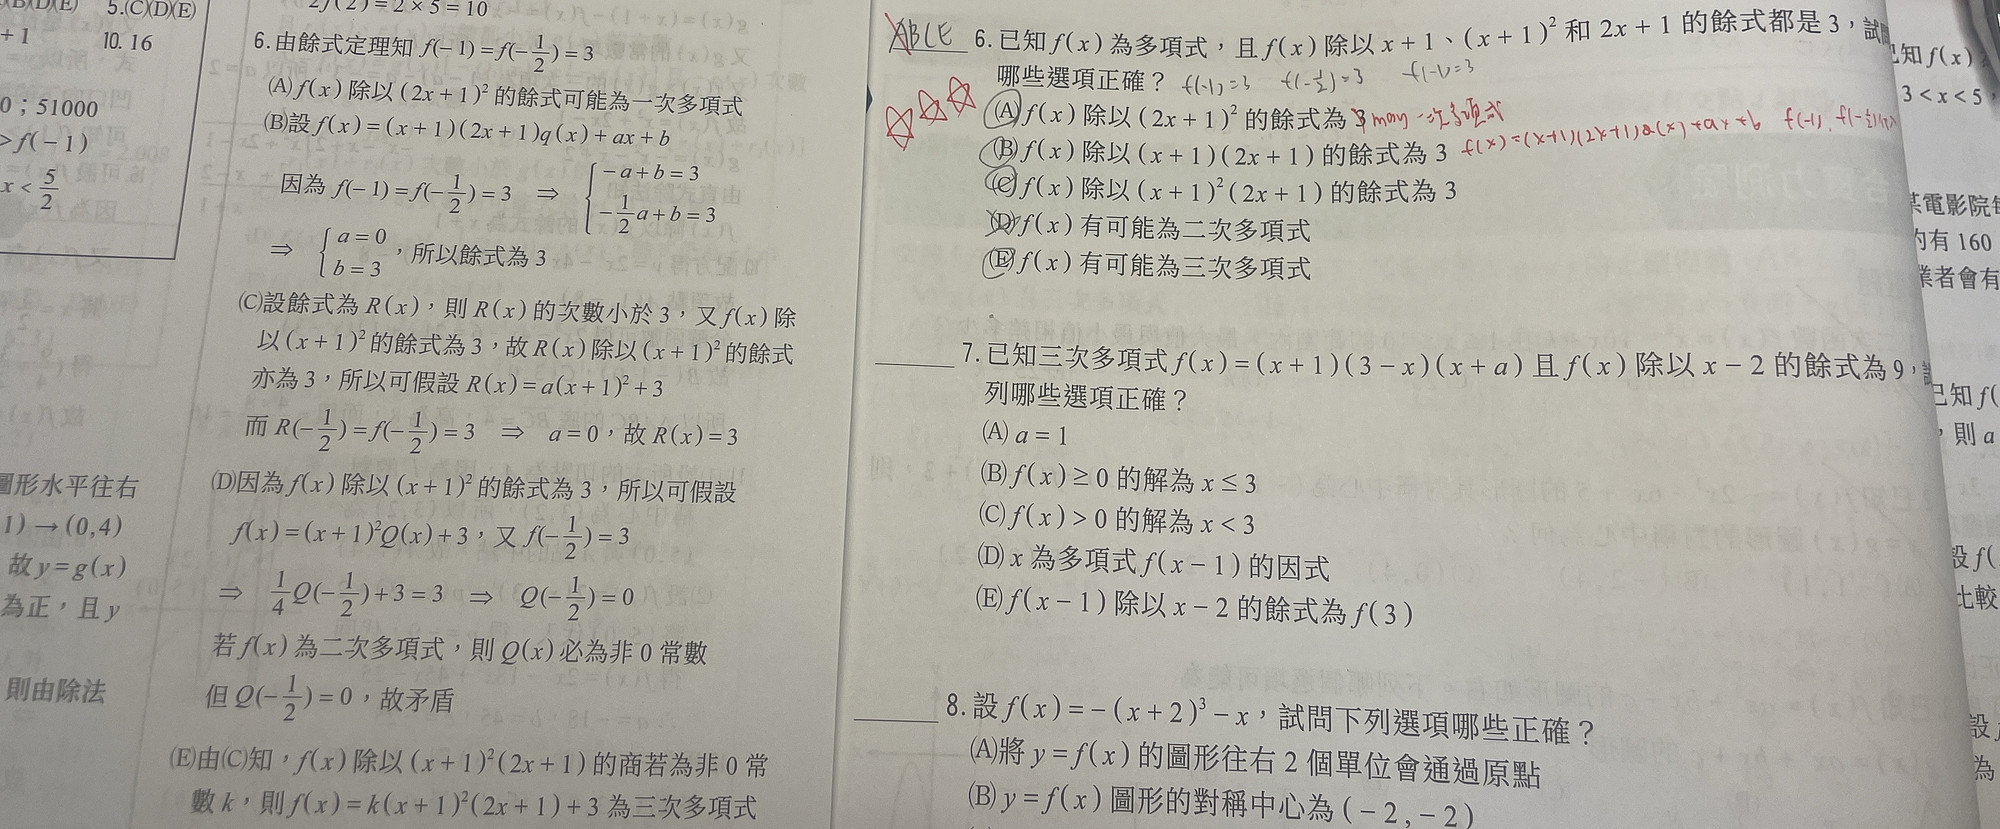 5.(C)(D)(E)
+1 10. 16
0；51000
>f(−1)
x<5/2
圖形水平往右
1)→(0,4)
故y=g(x)
為正，且y
則由除法
2f(2)=2×5=10
6.由餘式定理知 f(−1)=f(−1/2)=3
(A)f(x)除以(2x+1)²的餘式可能為一次多項式
(B)設f(x)=(x+1)(2x+1)q(x)+ax+b
因為 f(−1)=f(−1/2)=3 ⇒ { −a+b=3
−1/2a+b=3
⇒ { a=0
b=3 ，所以餘式為3
(C)設餘式為R(x)，則R(x)的次數小於3，又f(x)除
以(x+1)²的餘式為3，故R(x)除以(x+1)²的餘式
亦為3，所以可假設R(x)=a(x+1)²+3
而R(−1/2)=f(−1/2)=3 ⇒ a=0，故R(x)=3
(D)因為f(x)除以(x+1)²的餘式為3，所以可假設
f(x)=(x+1)²Q(x)+3，又f(−1/2)=3
⇒ 1/4Q(−1/2)+3=3 ⇒ Q(−1/2)=0
若f(x)為二次多項式，則Q(x)必為非0常數
但Q(−1/2)=0，故矛盾
(E)由(C)知，f(x)除以(x+1)²(2x+1)的商若為非0常
數k，則f(x)=k(x+1)²(2x+1)+3為三次多項式
ABCE 6.已知f(x)為多項式，且f(x)除以x+1、(x+1)²和2x+1的餘式都是3，試問
哪些選項正確？ f(-1)=3 f(-1/2)=3 f(-1)=3
(A)f(x)除以(2x+1)²的餘式為3 may 一次多項式
(B)f(x)除以(x+1)(2x+1)的餘式為3 f(x)=(x+1)(2x+1)Q(x)+ax+b f(-1), f(-1/2)
(C)f(x)除以(x+1)²(2x+1)的餘式為3
(D)f(x)有可能為二次多項式
(E)f(x)有可能為三次多項式
7.已知三次多項式f(x)=(x+1)(3−x)(x+a)且f(x)除以x−2的餘式為9，
列哪些選項正確？
(A)a=1
(B)f(x)≥0的解為x≤3
(C)f(x)>0的解為x<3
(D)x為多項式f(x−1)的因式
(E)f(x−1)除以x−2的餘式為f(3)
8.設f(x)=−(x+2)³−x，試問下列選項哪些正確？
(A)將y=f(x)的圖形往右2個單位會通過原點
(B)y=f(x)圖形的對稱中心為(−2,−2)
已知f(x)
3<x<5，
某電影院
約有160
業者會有
已知f(
，則a
設f(
比較
設
為